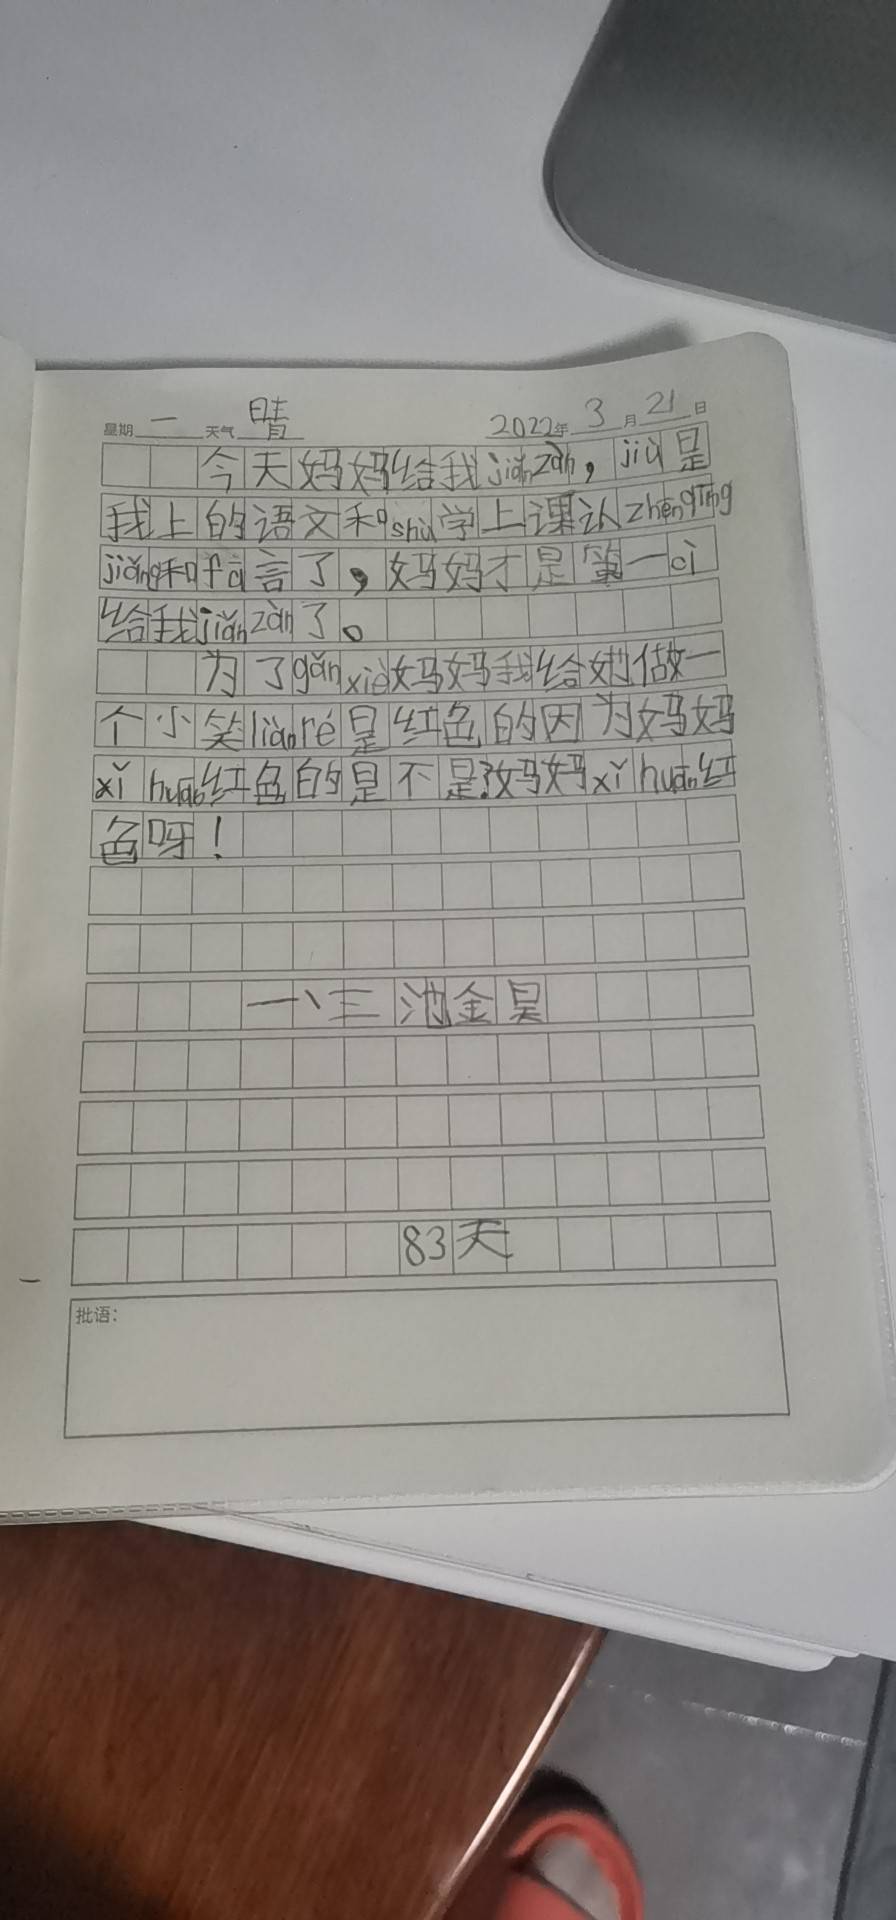 星期 一 天气 晴 2022年 3 月 21 日
今天妈妈给我jiǎnzàn，jiù是
我上的语文和shù学上课认zhēntīng
jiǎng和fā言了，妈妈才是第一cì
给我jiǎnzàn了。
为了gǎnxiè妈妈我给她做一
个小笑liǎnré是红色的因为妈妈
xǐhuān红色的是不是?妈妈xǐhuān红
色呀！
一、三 池金昊
83天
批语：